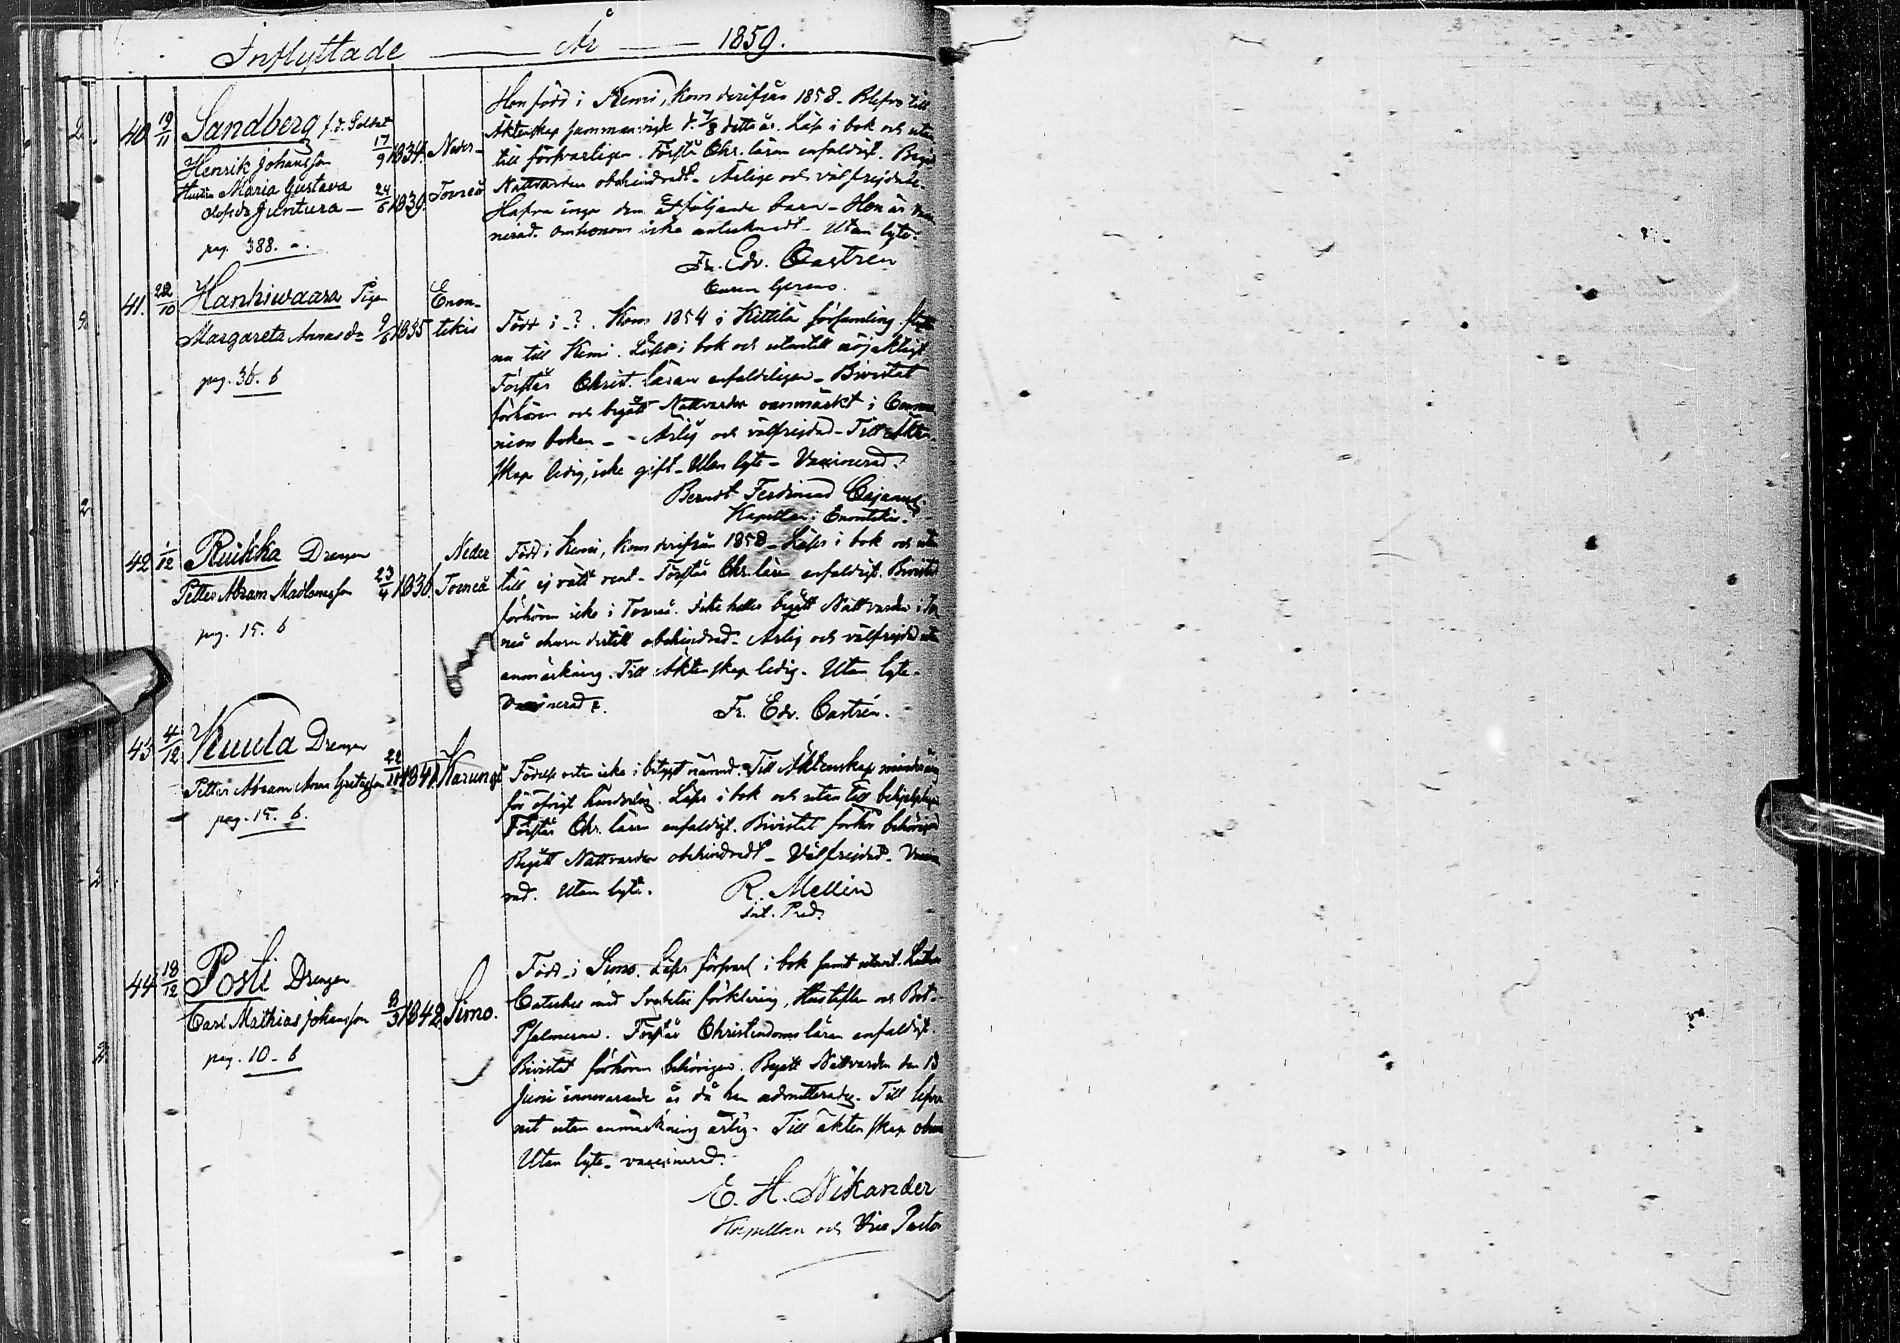 Inflyttade År 1859.
40 19/11 Sandberg f.d. Soldat
Henrik Johansson 17/9 1834. Neder-
Hustru Maria Gustava
Olofsdr Juntura 24/6 1839. Torneå
pag. 388. a.
Hon född i Kemi, kom derifrån 1858. Blefvo till
Äktenskap sammanvigde d. 7/8 detta år. Läsa i bok och utan
till försvarligen. Förstå Chr. läran enfaldigt. Begå
Nattvarden obehindradt. Ärlige och välfrejdade.
Hafva inga dem åtföljande barn. Hon är vacci
nerad. Om honom icke antecknadt. Utan lyte.
Fr. Edv. Castrén
41. 22/10 Hanhiwaara Pigan
Margareta Annasdr 9/6 1835 Enon-
tekis
pag. 36. b
Född i ?. Kom 1854 i Kittilä församling flytt
nu till Kemi. Läser i bok och utantill nöjaktigt.
Förstår Christ. läran enfaldeligen. Bivistat
förhören och begått Nattvarden oanmärkt i Commu
nion boken. Ärlig och välfrejdad. Till Äkten
skap ledig, icke gift. Utan lyte. Vaccinerad.
Berndt Ferdinand Cajanus
Kapellan i Enontekis.
42 1/12 Ruikka Drengen
Petter Abram Madlenasson 23/4 1836 Neder
Torneå
pag. 15. b
Född i Kemi, kom derifrån 1858. Läser i bok och utan
till ej rätt rent. Förstår Chr. läran enfaldigt. Bivistat
förhören icke i Torneå. Icke heller begått Nattvarden i Tor
neå churu dertill obehindrad. Ärlig och välfrejdad utan
anmärkning. Till Äktenskap ledig. Utan lyte.
Vaccinerad.
Fr. Edv. Castrén.
43 4/12 Kuula Drengen
Petter Abram Anna Gretasson 22/11 1841 Karungi
pag. 15. b.
Födelse orten icke i betyget nämnd. Till Äktenskap minderårig
för öfrigt hinderlös. Läser i bok och utan till
Förstår Chr. läran enfaldigt. Bivistat förhör behörigen
Begått Nattvarden obehindradt. Välfrejdad. Vaccine
rad. Utan lyte.
R. Mellin
44 18/12 Posti Drengen
Carl Mathias Johansson 8/3 1842 Simo.
pag. 10. b
Född i Simo. Läser försvarl i bok samt utant. Luthers
Cateches med Svebelii förklaring, Hustaflan och Bot-
Psalmerna. Förstår Christendoms läran enfaldigt
Bivistat förhören behörigen. Begått Nattvarden den 13
Juni innevarande år då han admitterades. Till lefver
net utan anmärkning ärlig. Till äktenskap
Utan lyte. vaccinerad.
E. H. Nikander
Kapellan och Vice Pastor